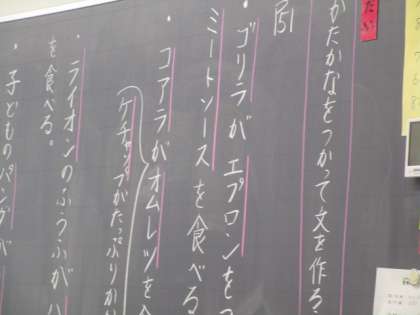 だい
かたかなをつかって文を作ろ
例
・ゴリラがエプロンをつ
ミートソースを食べる
・コアラがオムレツを食
ケチャップがたっぷりかか
・ライオンのふうふがハ
を食べる。
・子どものパンダが